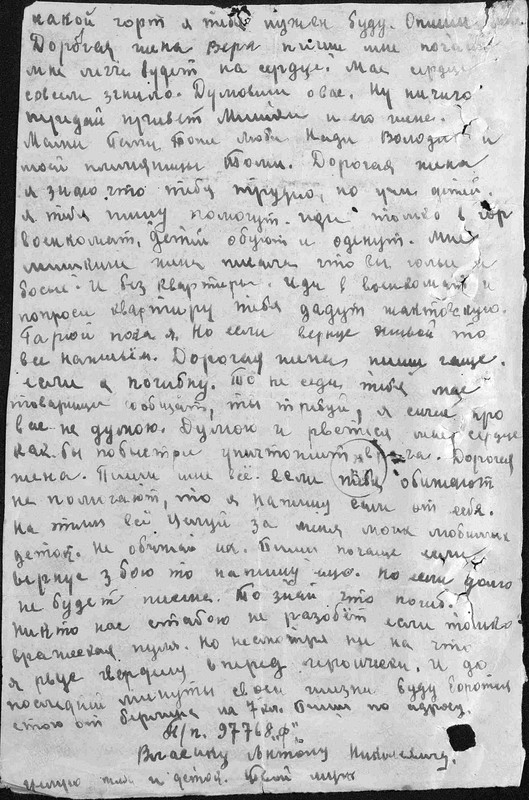 какой горт я тибе нужен буду. Опиши
Дорогая жена Вера пиши мне почаще
мне легче будет на сердце. Мае сердце
совсем згнило. Думовши о вас. Ну ничиго
передай привет Мишки и его жине.
Мами Тани Тони Люби Нади Володи и
моей племяницы Толи. Дорогая жина
я знаю что тибя трудно, но учи детей.
я тибя пишу помогут. иди только в гор
военкомат, детей обуют и оденут. Мне
мишкина жина писала что вы голые и
босые. И без квартиры. Иди в военкомат и
попроси квартиру тибя дадут
пока я. Но если вернусе живой то
все напишем. Дорогая жина пиши чаще.
если я погибну. То не седи тибя мае
товарищи сообщат, ты трибуй, я сичас про
вас не думою. Думою и рветься мае сердце
как бы побыстри уничтожить врага. Дорогая
жена. Пиши мне всё. если тибя обижают
не помогают, то я напишу сам от себя.
На этим всё Цилуй за меня моих любимых
деток. Не обижай их. Пиши почаще если
вернусе з бою то напишу ищо. но если долго
не будет писма. То знай что погиб.
Никто нас стабою не разобьёт если только
вражеская пуля. Но несмотря ни на что
я рвусе твердиш вперед героически. И до
последий минуты своей жизни буду боротся
стою от берлина на 7 км. Пиши по адресу.
П/п. 97768 „Ф"
Власину Антону Николаевичу.
целую тибя и деток. Твой муж